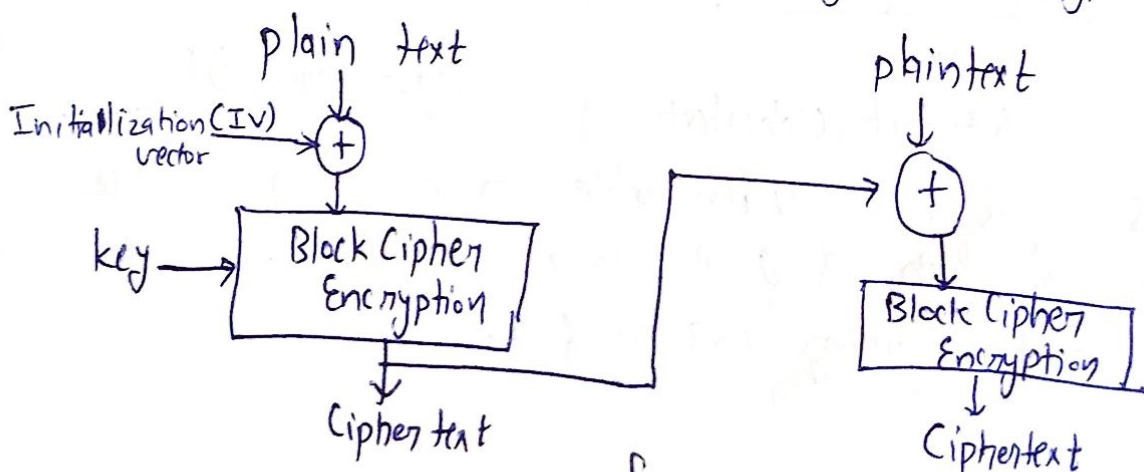 plain text
Initiallization (IV)
vector
+
key
Block Cipher
Encryption
Ciphertext
plaintext
+
Block Cipher
Encryption
Ciphertext